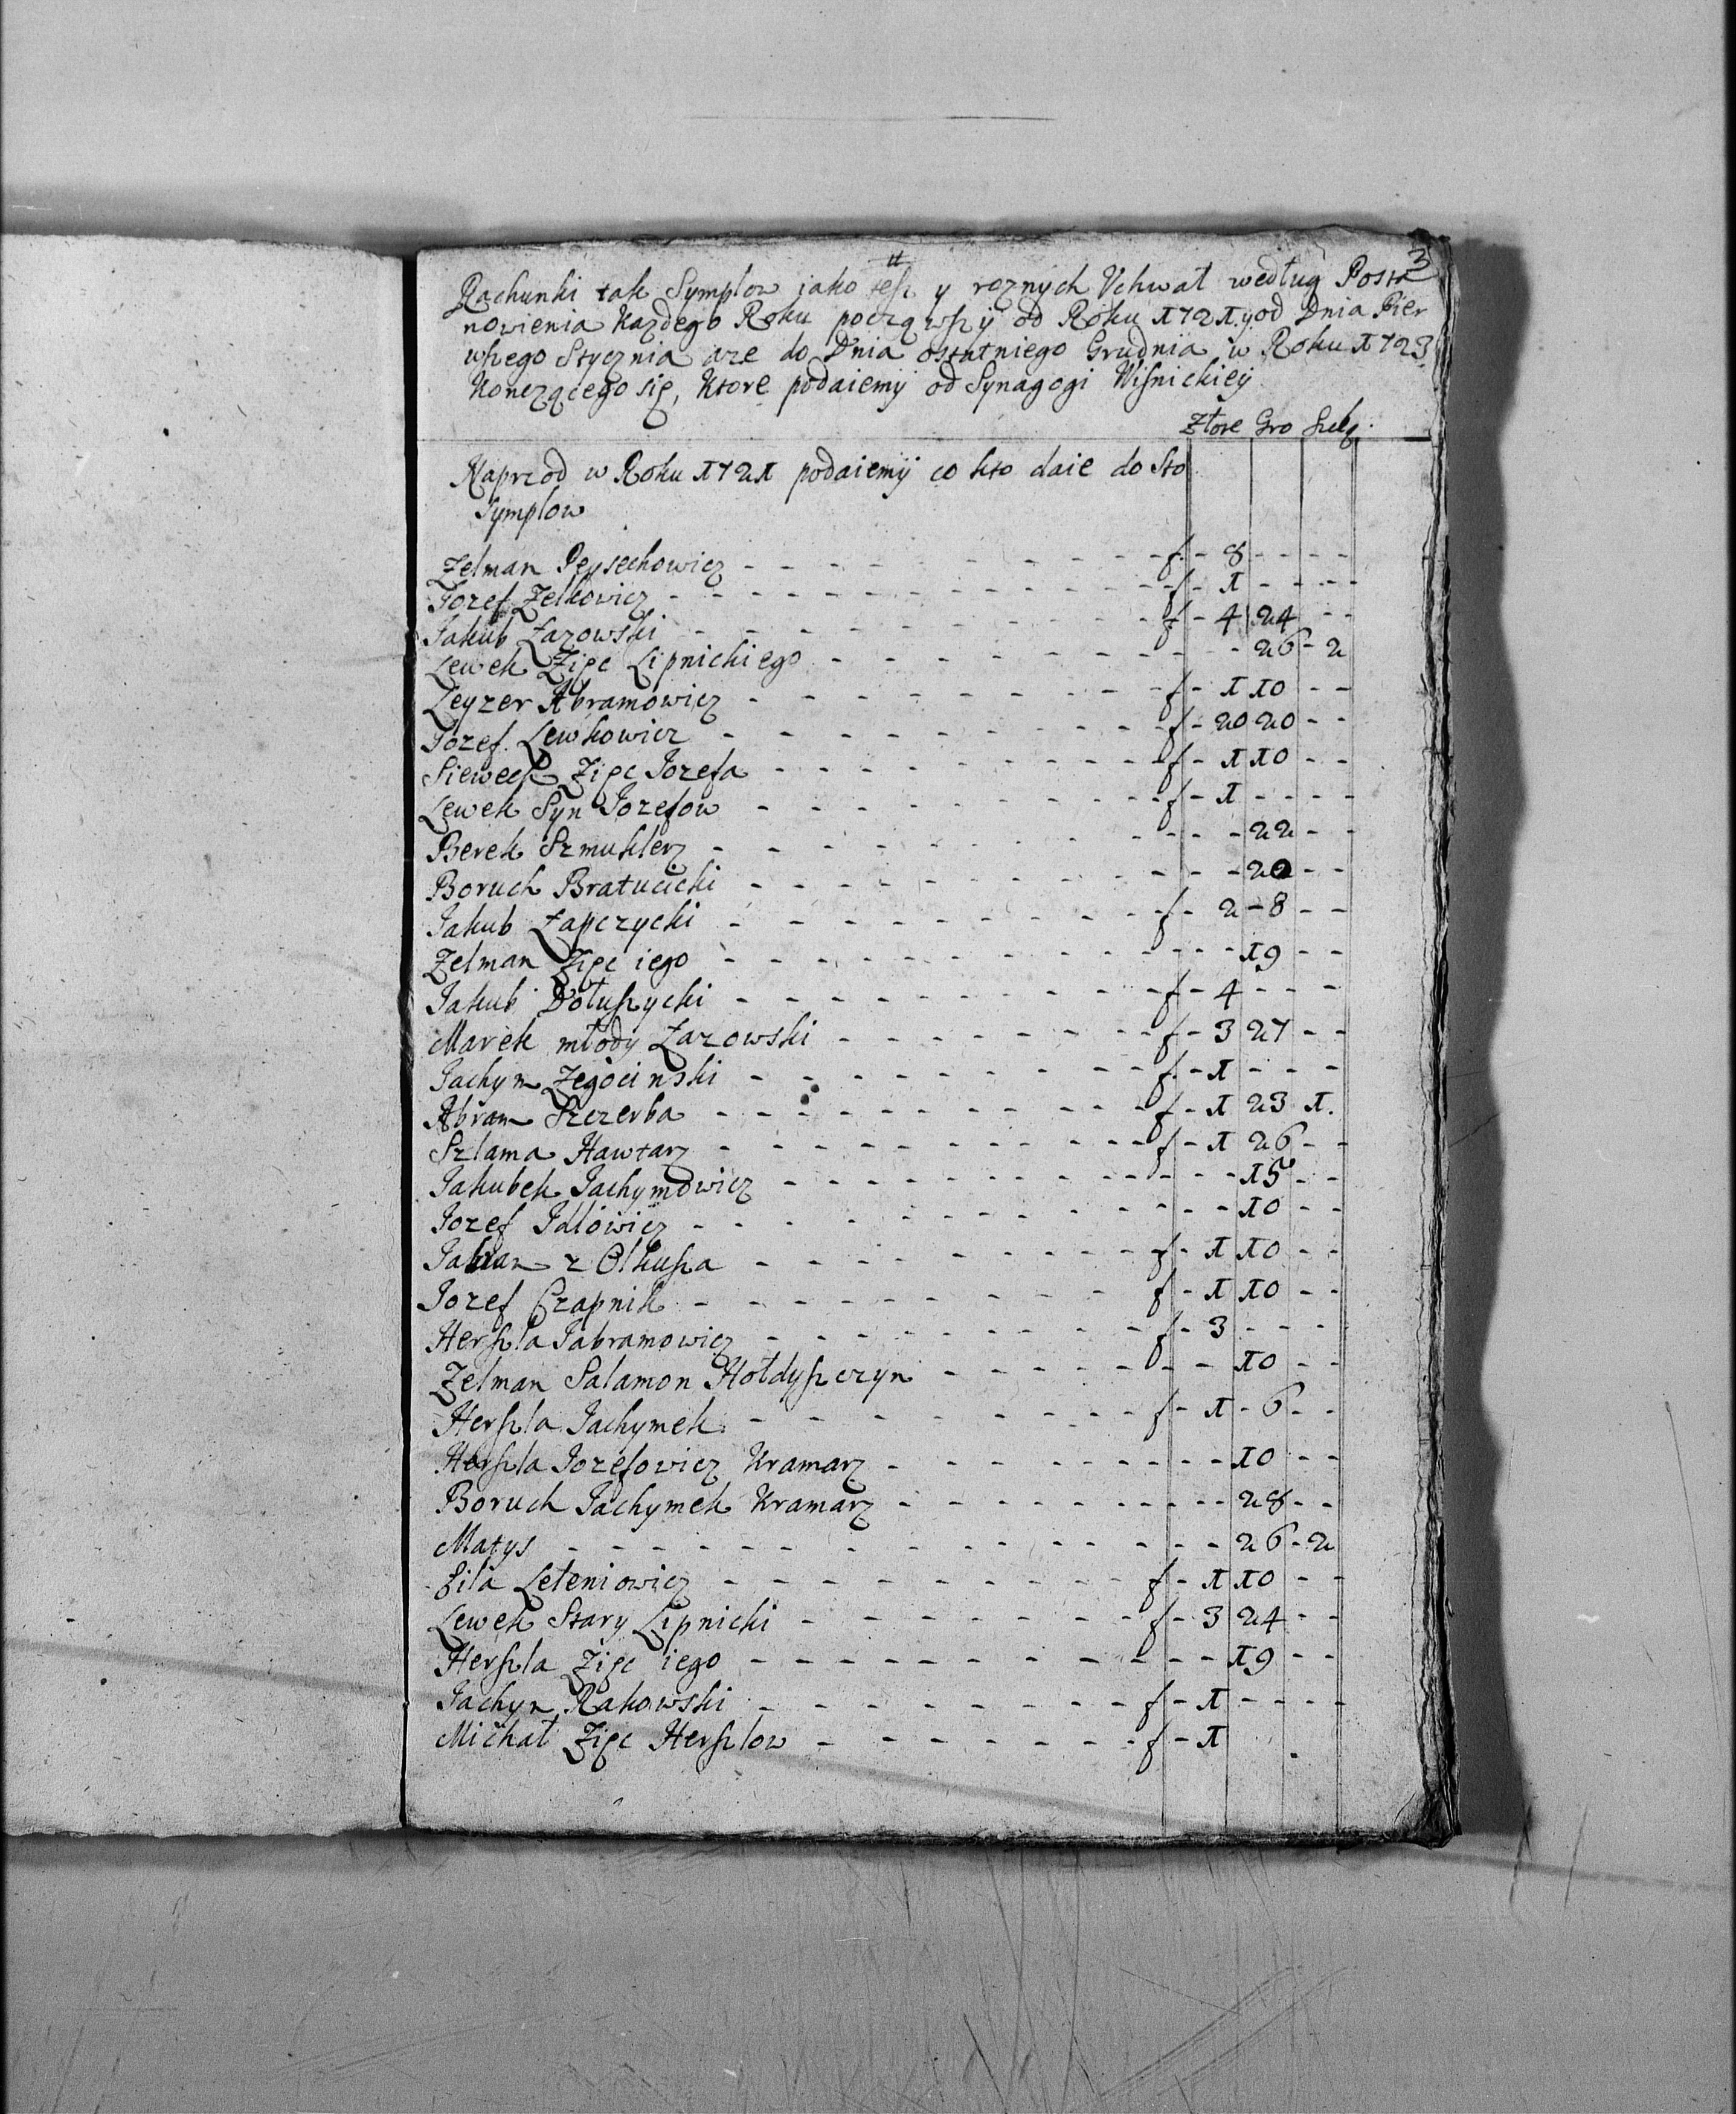 3
Rachunki tak Symplow jako tesz y roznych Vchwał według Posta
nowienia Kazdego Roku począwszÿ od Roku 1721 ÿ od Dnia Pier
wszego Stycznia aze do Dnia ostatniego Grudnia w Roku 1723
Konczącego się, Ktore podaiemÿ od Synagogi Wisnickieÿ
Złote Gro Szelą:
Naprzod w Roku 1721 podaiemÿ co kto daie do Sto
Symplow
Zelman Peysechowicz - - - f - 8 - - - -
Jozef Zelkowicz - - - f - 1 - - - -
Jakub Łazowski - - - f - 4 24 - -
Lewek Zięc Lipnickiego - - - 26 - 2
Leyzer Abramowicz - - - f - 1 10 - -
Jozef Lewkowicz - - - f - 20 20 - -
Zięc Jozefa - - - f - 1 10 - -
Lewek Syn Jozefow - - - f - 1 - - - -
Berek Szmuklerz - - - 22 - -
Boruch Bratucicki - - - 20 - -
Jakub Łapczycki - - - f - 2 - 8 - -
Zelman Zięc iego - - - 19 - -
Jakub Dołuszycki - - - f - 4 - - -
Marek młody Łazowski - - - f - 3 27 - -
Jachym Zegocinski - - - f - 1 - - -
Abram Szczerba - - - f - 1 23 1.
Szlama Hawtarz - - - f - 1 26 - -
Jakubek Jachymowicz - - - 15 - -
Jozef Jalowicz - - - 10 - -
z Olkusza - - - f - 1 10 - -
Jozef Czapnik - - - f - 1 10 - -
Herszla Jabramowicz - - - f - 3 - - -
Zelman Salamon Hołdyszczyn - - - 10 - -
Herszla Jachymek - - - f - 1 - 6 - -
Herszla Jozefowicz Kramarz - - - 10 - -
Boruch Jachymek Kramarz - - - 28 - -
Matys - - - 26 - 2
Leteniowicz - - - f - 1 10 - -
Lewek Stary Lipnicki - - - f - 3 24 - -
Herszla Zięc iego - - - 19 - -
Jachym Rakowski - - - f - 1 - - - -
Michał Zięc Herszlow - - - f - 1